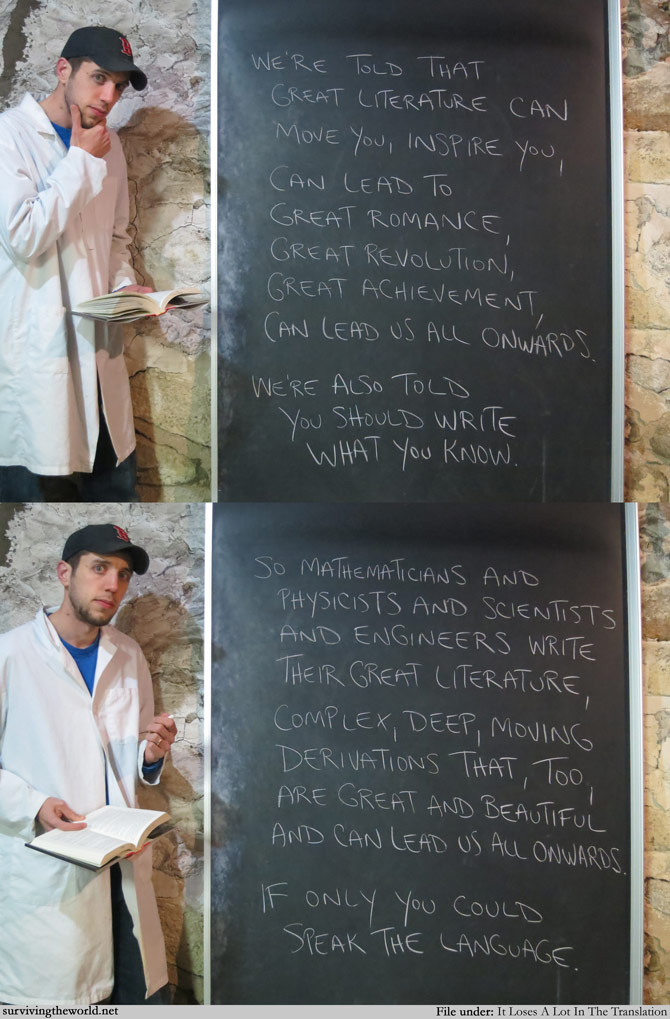 WE'RE TOLD THAT
GREAT LITERATURE CAN
MOVE YOU, INSPIRE YOU,
CAN LEAD TO
GREAT ROMANCE,
GREAT REVOLUTION,
GREAT ACHIEVEMENT,
CAN LEAD US ALL ONWARDS.
WE'RE ALSO TOLD
YOU SHOULD WRITE
WHAT YOU KNOW.
SO MATHEMATICIANS AND
PHYSICISTS AND SCIENTISTS
AND ENGINEERS WRITE
THEIR GREAT LITERATURE,
COMPLEX, DEEP, MOVING
DERIVATIONS THAT, TOO,
ARE GREAT AND BEAUTIFUL
AND CAN LEAD US ALL ONWARDS.
IF ONLY YOU COULD
SPEAK THE LANGUAGE.
survivingtheworld.net
File under: It Loses A Lot In The Translation